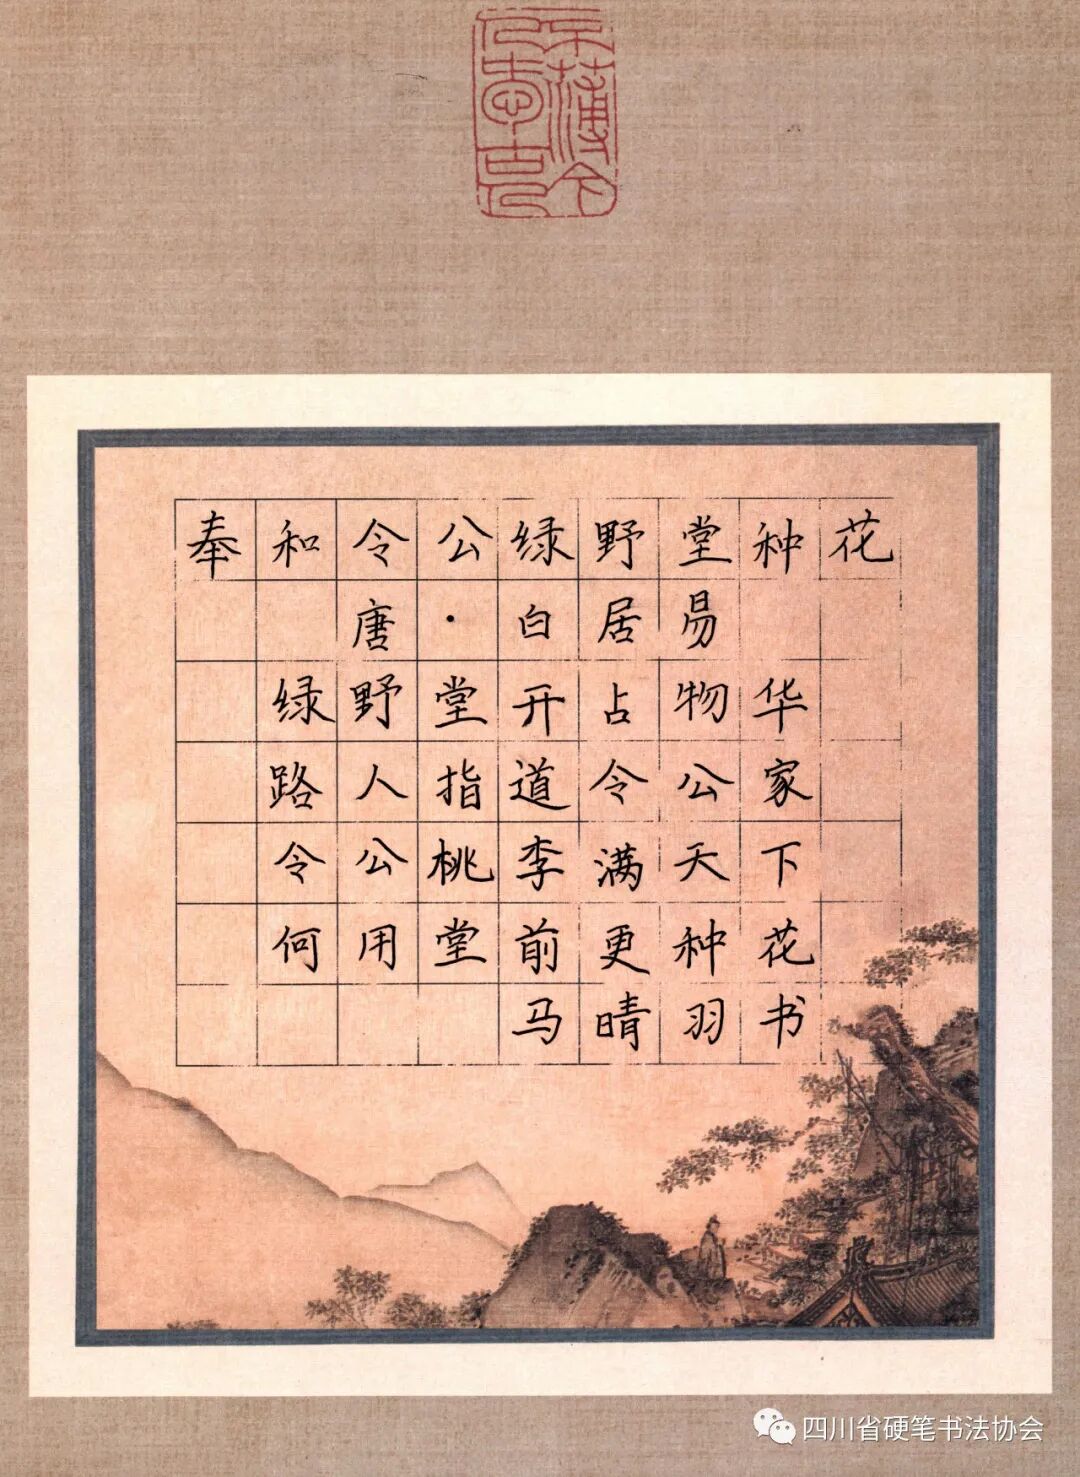 奉和令公绿野堂种花
唐·白居易
绿野堂开占物华
路人指道令公家
令公桃李满天下
何用堂前更种花
马晴羽书
四川省硬笔书法协会